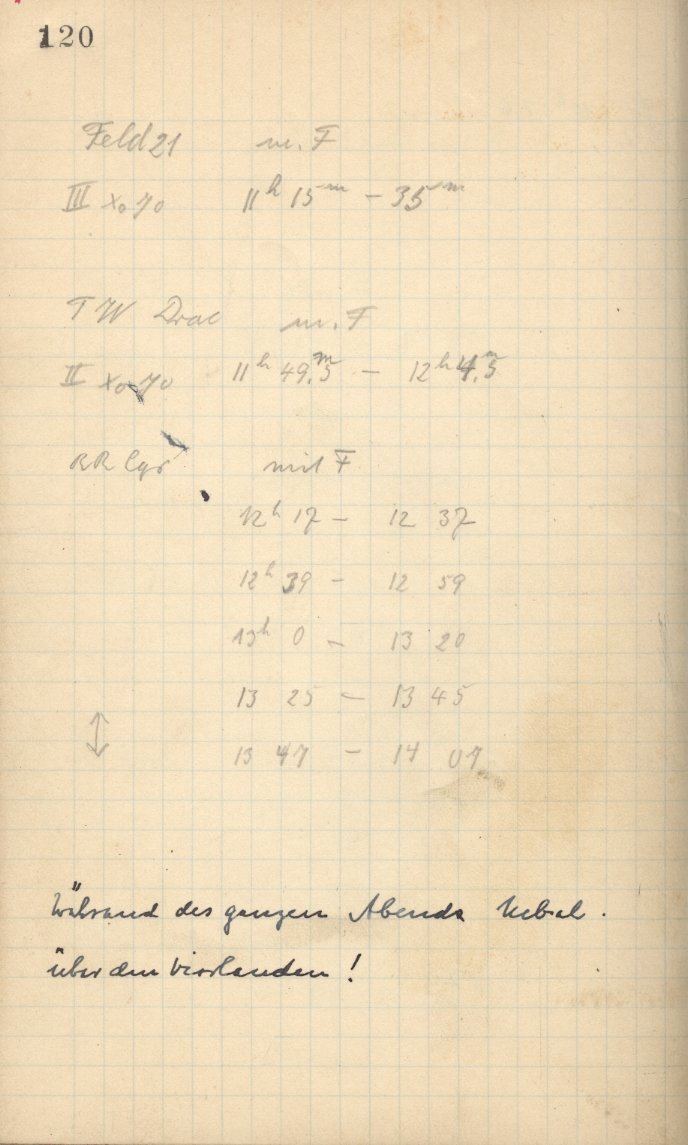 120
Feld 21 m. F
III 11h 15m – 35m
TW Drac m. F
II 11h 49.5m – 12h 4.5m
RR Lyr mit F
12h 17 – 12 37
12h 39 – 12 59
13h 0 – 13 20
13 25 – 13 45
↕
13 47 – 14 07
Während des ganzen Abends Nebel.
über den Vierlanden!